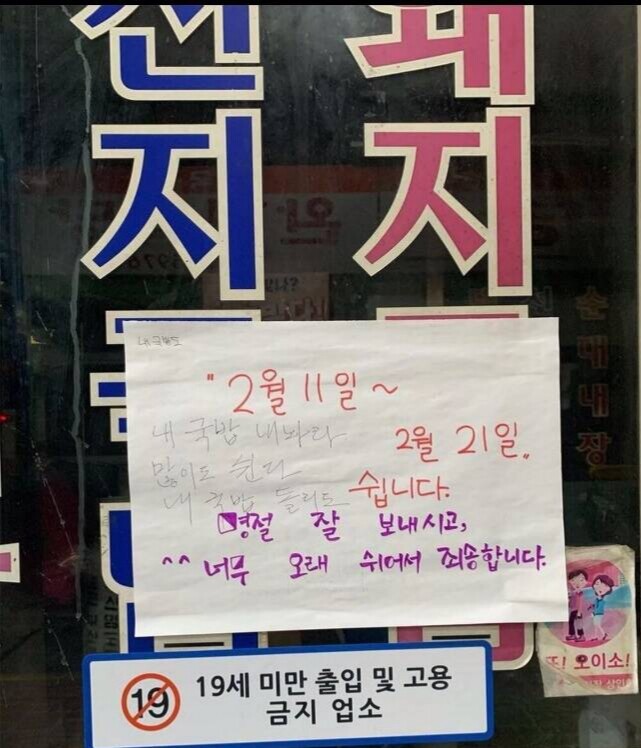 전지
돼지
순대내장
내 국밥도
" 2월 11일 ~
2월 21일 "
쉽니다.
내 국밥 내놔라
많이도 쉰다
내 국밥 돌리도
명절 잘 보내시고,
^^ 너무 오래 쉬어서 죄송합니다.
또! 오이소!
19
19세 미만 출입 및 고용
금지 업소